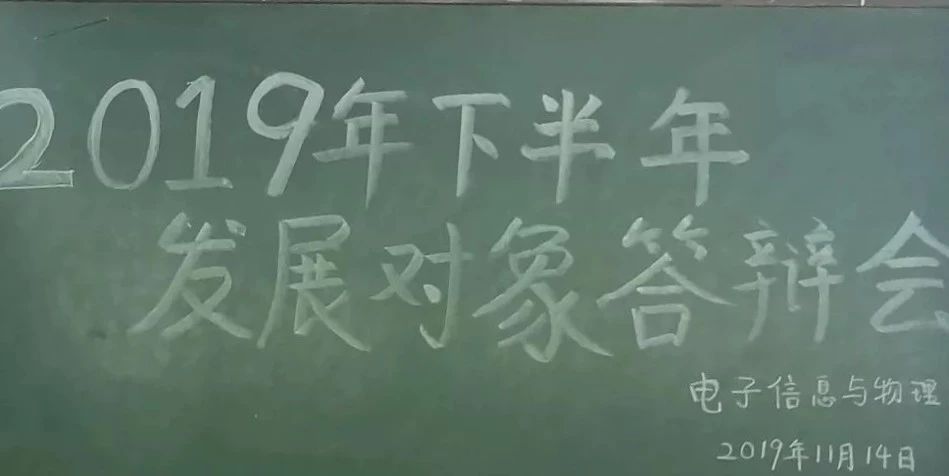 2019年下半年
发展对象答辩会
电子信息与物理
2019年11月14日